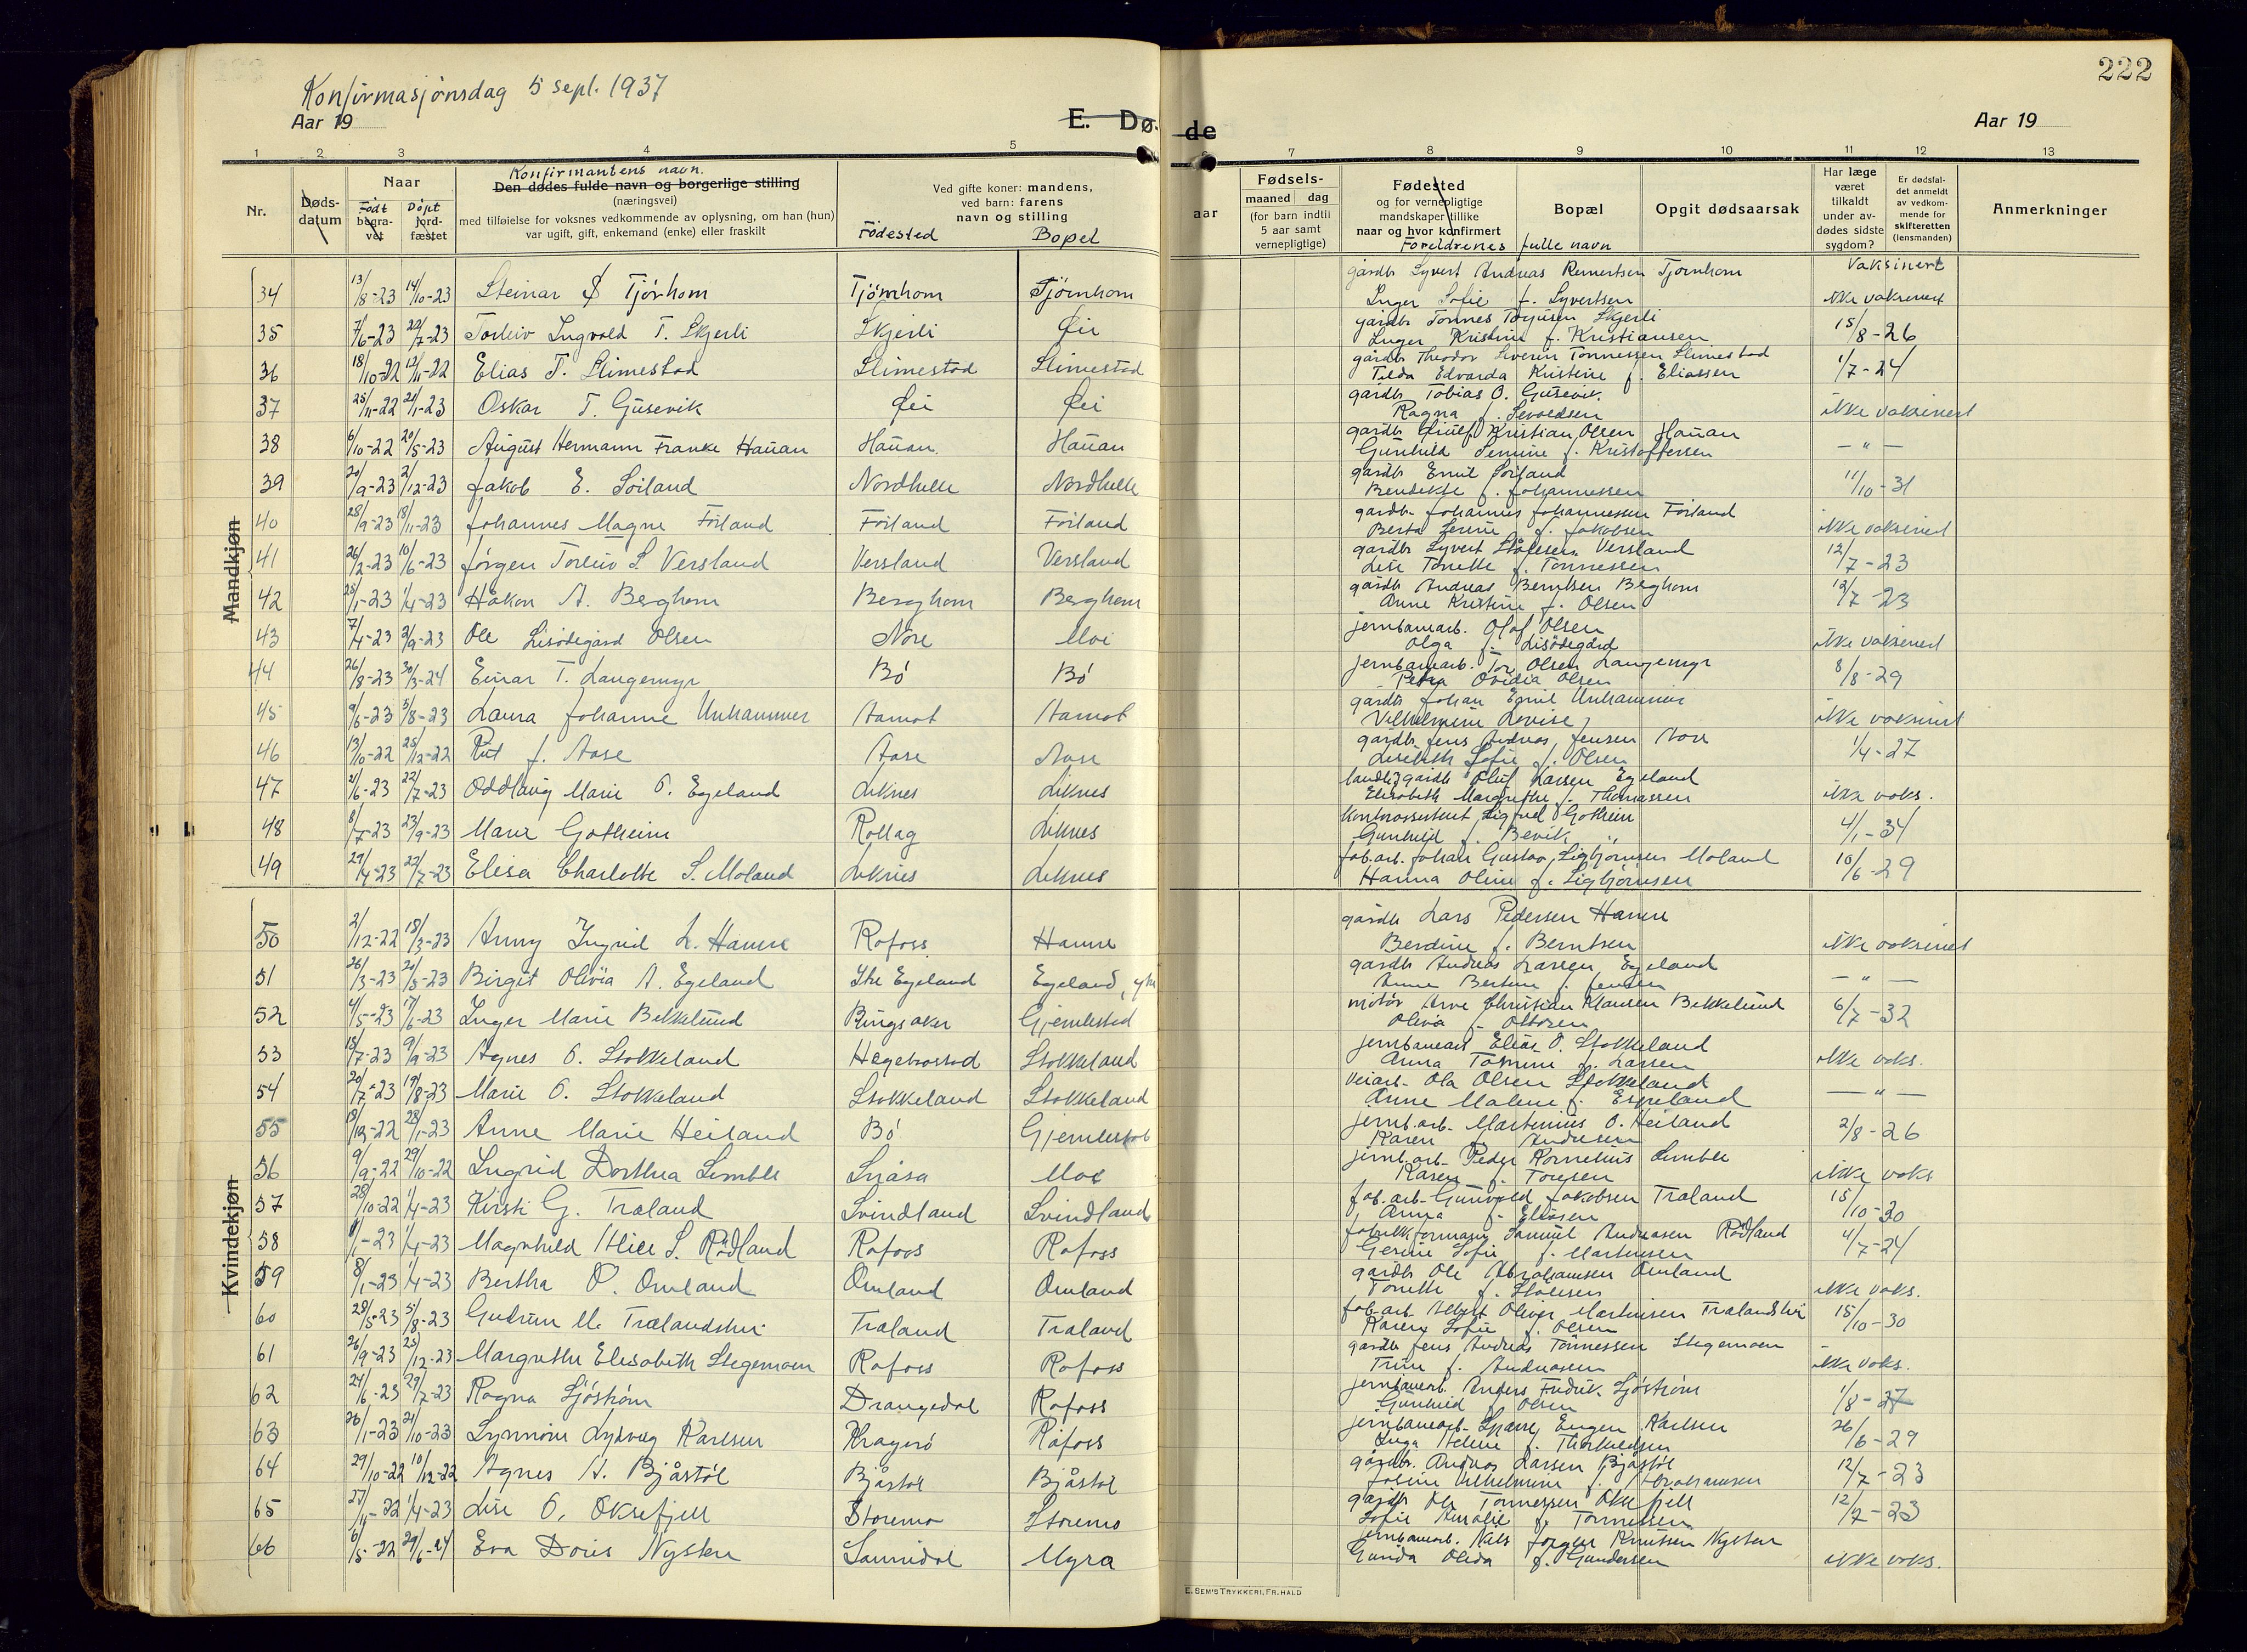 222
Konfirmasjonsdag 5 sept. 1937
Aar 19
E. Dø. de
Aar 19
1 2 3 4 5 7 8 9 10 11 12 13
Nr.
Døds-datum
Naar
Født Døpt
begra-vet jord-fæstet
Konfirmantens navn.
Den dødes fulde navn og borgerlige stilling
(næringsvei)
med tilføielse for voksnes vedkommende av oplysning, om han (hun)
var ugift, gift, enkemand (enke) eller fraskilt
Ved gifte koner: mandens,
ved barn: farens
navn og stilling
Fødested Bopel
aar
Fødsels-
maaned dag
(for barn indtil
5 aar samt
vernepligtige)
Fødested
og for vernepligtige
mandskaper tillike
naar og hvor konfirmert
Foreldrenes fulle navn
Bopæl
Opgit dødsaarsak
Har læge
været
tilkaldt
under av-
dødes sidste
sygdom?
Er dødsfal-
det anmeldt
av vedkom-
mende for
skifteretten
(lensmanden)
Anmerkninger
Vaksinert
Mandkjøn
34 13/8-23 14/10-23 Steinar S Tjørhom Tjørnhom Tjørnhom gårdbr Syvert Andreas Reinertsen Tjørnhom
Inger Sofie f. Syvertsen ikke vaksinert
35 7/6-23 22/7-23 Torleiv Ingvald T. Skjerli Skjerli Øie gårdbr Tønnes Torjusen Skjerli
Inger Kristine f. Kristiansen 15/8-26
36 18/10-22 12/11-22 Elias T. Slimestad Slimestad Slimestad gårdbr Theodor Severin Tønnessen Slimestad
Tilda Edvarda Kristine f. Eliassen 1/7-24
37 25/11-22 21/1-23 Oskar T. Gusevik Øei Øei gårdbr Tobias O. Gusevik
Ragna f. Sevaldsen ikke vaksinert
38 6/10-22 20/5-23 August Hermann Franke Hauan Hauan Hauan gårdbr Kristian Olsen Hauan
Gunhild Semine f. Kristoffersen — " —
39 20/9-23 2/12-23 Jakob E. Søiland Nordhelle Nordhelle gårdbr Emil Søiland
Bendikte f. Johannessen 11/10-31
40 28/9-23 18/11-23 Johannes Magne Föiland Föiland Föiland gårdbr Johannes Johannessen Föiland
Berta Serine f. Jakobsen ikke vaksinert
41 26/2-23 10/6-23 Jørgen Torleiv S Versland Versland Versland gårdbr Syvert Stålesen Versland
Lise Tonette f. Tønnessen 12/7-23
42 25/1-23 1/4-23 Håkon A. Berghom Berghom Berghom gårdbr Andreas Berntsen Berghom
Anne Kristine f. Olsen 12/7-23
43 7/4-23 2/9-23 Ole Lisödegård Olsen Nore Moi jernbanearb. Olaf Olsen
Olga f. Lisödegård ikke vaksinert
44 26/8-23 30/3-24 Einar T. Langemyr Bö Bö jernbanearb. Tor Olsen Langemyr
Petra Ovidia Olsen 8/8-29
45 9/6-23 5/8-23 Laura Johanne Unhammer Aamot Aamot gårdbr Johan Emil Unhammer
Vilhelmine Lovise ikke vaksinert
46 13/10-22 25/12-22 Rut J. Aase Aase Aase gårdbr. Jens Andreas Jensen Aase
Lisebeth Sofie f. Olsen 1/4-27
47 2/6-23 22/7-23 Oddlaug Marie O. Egeland Liknes Liknes gårdb Oluf Larsen Egeland
Elisabeth Margrethe f. Thomassen ikke vaks.
48 8/7-23 23/9-23 Marie Gotheim Rollag Liknes Gotheim
Gunhild f. Bevik 4/1-34
49 29/4-23 22/7-23 Elisa Charlotte S. Moland Liknes Liknes fab.arb. Johan Gustav Sigbjørnsen Moland
Hanna Oline f. Sigbjørnsen 10/6-29
Kvindekjøn
50 2/12-22 18/3-23 Anny Ingrid L. Hamre Rafoss Hamre gårdbr Lars Pedersen Hamre
Berdine f. Berntsen ikke vaksinert
51 26/3-23 20/5-23 Birgit Olivia A. Egeland Itre Egeland Egeland, ytre gårdbr Andreas Larsen Egeland
Anne Bertine f. Jensen — " —
52 4/5-23 17/6-23 Inger Marie Bekkelund Ringsaker Gjemlestad Arne Christian Klausen Bekkelund
Olivia f. Ottosen 6/7-32
53 15/7-23 9/9-23 Agnes O. Stokkeland Hægebostad Stokkeland jernbanearb Elias O. Stokkeland
Anna Tomine f. Larsen ikke vaks.
54 20/7-23 19/8-23 Marie O. Stokkeland Stokkeland Stokkeland veiarb. Ola Olsen Stokkeland
Anne Malene f. Espeland — " —
55 19/12-22 28/1-23 Anne Marie Heiland Bö Gjemlestad jernb.arb. Martinius O. Heiland
Karen f. Andersen 2/8-26
56 9/9-22 29/10-22 Ingrid Dorthea Semble Snåsa Moi jernb.arb. Peder Kornelius Semble
Karen f. Toresen ikke vaks
57 28/10-22 1/4-23 Kirsti G. Træland Svindland Svindland fab.arb. Gunvald Jakobsen Træland
Anna f. Eliasen 15/10-30
58 1/1-23 1/4-23 Magnhild Alice S. Rødland Rafoss Rafoss fabrikkformann Samuel Andreasen Rødland
Gesine Sofie f. Martinsen 4/7-24
59 8/1-23 1/4-23 Bertha O. Omland Omland Omland gårdbr Ole Abrahamsen Omland
Tonette f. Stålesen ikke vaks.
60 28/5-23 5/8-23 Gudrun M. Trælandshei Træland Træland fab.arb. Albert Oliver Martinsen Trælandshei
Karen Sofie f. Olsen 15/10-30
61 26/9-23 25/12-23 Margrethe Elisabeth Stegemoen Rafoss Rafoss gårdbr Jens Andreas Tønnessen Stegemoen
Trine f. Andreasen ikke vaks.
62 24/6-23 29/7-23 Ragna Sjöström Drangedal Rafoss jernbanearb. Anders Fredrik Sjöström
Gunhild f. Olsen 1/8-27
63 26/1-23 21/10-23 Synnöve Lydveig Karlsen Kragerö Rafoss jernbanearb. Eugen Karlsen
Inga Helene f. Thorkildsen 26/6-29
64 29/10-22 10/12-22 Agnes A. Bjåstöl Bjåstöl Bjåstöl gårdbr. Andreas Larsen Bjåstöl
Vilhelmine f. Abrahamsen 12/7-23
65 27/11-22 1/4-23 Lise O. Oksefjell Storemo Storemo gårdbr Ole Tønnessen Oksefjell
Sofie Amalie f. Tønnessen 12/7-23
66 6/5-22 29/6-24 Eva Doris Nysten Sannidal Myra jernbanearb. Nils Jørgen Knutsen Nysten
Gunda Olida f. Gundersen ikke vaks.
E. SEM'S TRYKKERI, FR. HALD